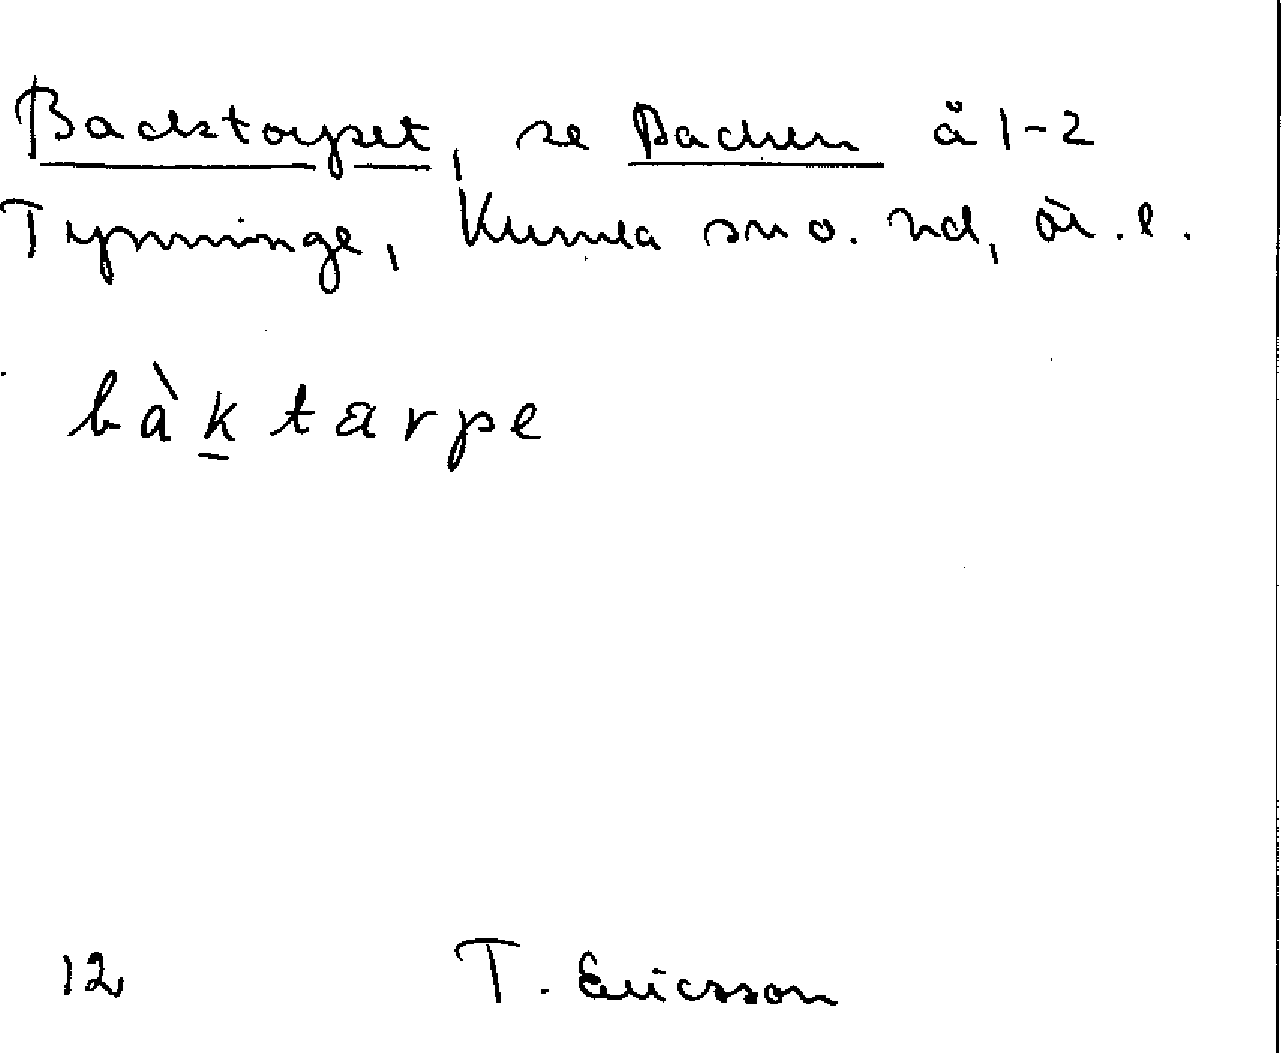 Backtorpet, se Backen å 1-2
Tynninge, Kumla sn o. hd, ör. l.
bàktarpe
12 T. Ericsson